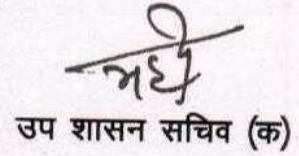 उप शासन सचिव (क)